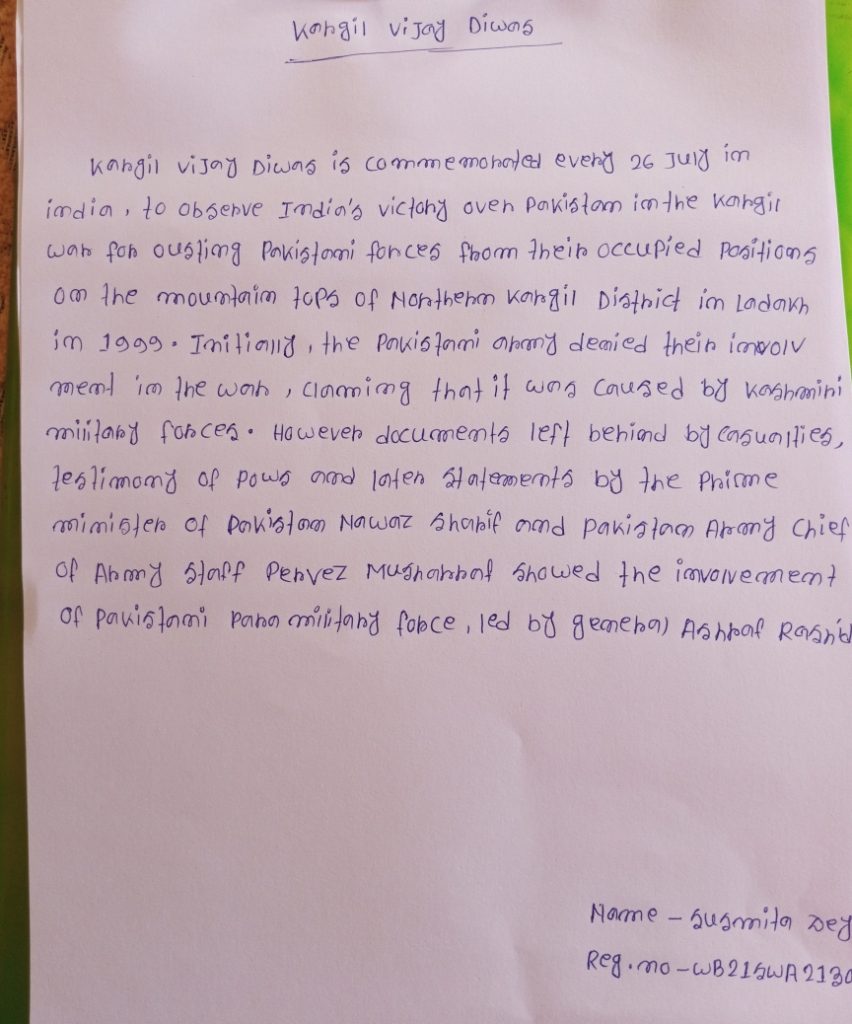 Kargil Vijay Diwas
Kargil Vijay Diwas is commemorated every 26 July in
india, to observe India's victory over Pakistan in the Kargil
war for ousting Pakistani forces from their occupied Positions
on the mountain tops of Northern Kargil District in Ladakh
in 1999. Initially, the Pakistani army denied their involv
ment in the war, claming that it was caused by Kashmiri
military forces. However documents left behind by casualties,
testimony of Pows and later statements by the Prime
minister of Pakistan Nawaz Sharif and Pakistan Army Chief
of Army Staff Pervez Musharraf showed the involvement
of Pakistani Para military force, led by general Ashraf Rashid
Name - Susmita Dey
Reg. no - WB21SWA2130